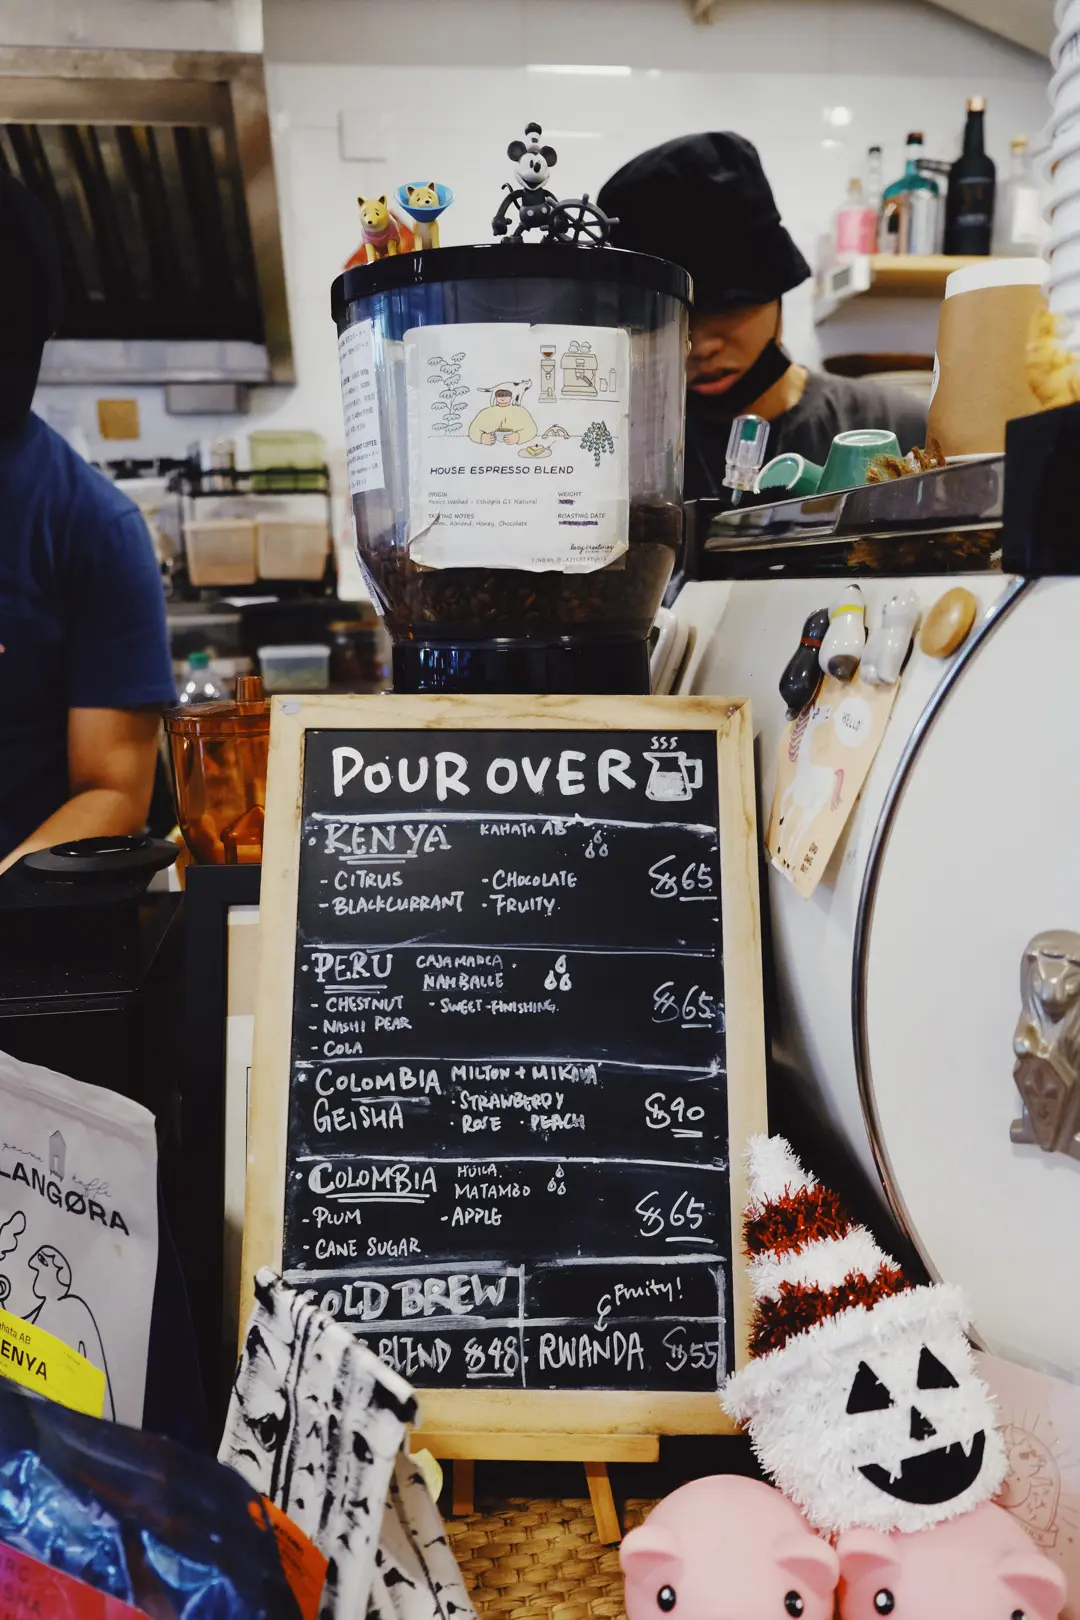 HOUSE ESPRESSO BLEND
ORIGIN
WEIGHT
Mexico Washed - Ethiopia G1 Natural
TASTING NOTES
ROASTING DATE
Almond, Honey, Chocolate
HELLO!
POUR OVER
KENYA KAHATA AB
- CITRUS - CHOCOLATE
- BLACKCURRANT - FRUITY.
$65
PERU CAJAMARCA
NAMBALLE
- CHESTNUT - SWEET-FINISHING.
- NASHI PEAR
- COLA
$65
COLOMBIA MILTON +
GEISHA · STRAWBERRY
· ROSE · PEACH
$90
COLOMBIA HUILA.
MATAMBO
- PLUM - APPLE
- CANE SUGAR
$65
OLD BREW
Fruity!
BLEND $48
RWANDA $55
LANGØRA
kaffe
ahata AB
ENYA